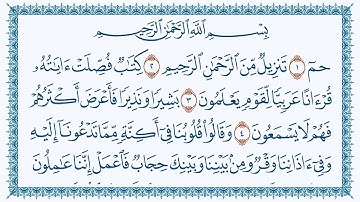 بِسْمِ ٱللَّهِ ٱلرَّحْمَٰنِ ٱلرَّحِيمِ
حمٓ ١ تَنزِيلٌ مِّنَ ٱلرَّحْمَٰنِ ٱلرَّحِيمِ ٢ كِتَٰبٌ فُصِّلَتْ ءَايَٰتُهُۥ
قُرْءَانًا عَرَبِيًّا لِّقَوْمٍ يَعْلَمُونَ ٣ بَشِيرًا وَنَذِيرًا فَأَعْرَضَ أَكْثَرُهُمْ
فَهُمْ لَا يَسْمَعُونَ ٤ وَقَالُوا۟ قُلُوبُنَا فِىٓ أَكِنَّةٍ مِّمَّا تَدْعُونَآ إِلَيْهِ
وَفِىٓ ءَاذَانِنَا وَقْرٌ وَمِنۢ بَيْنِنَا وَبَيْنِكَ حِجَابٌ فَٱعْمَلْ إِنَّنَا عَٰمِلُونَ